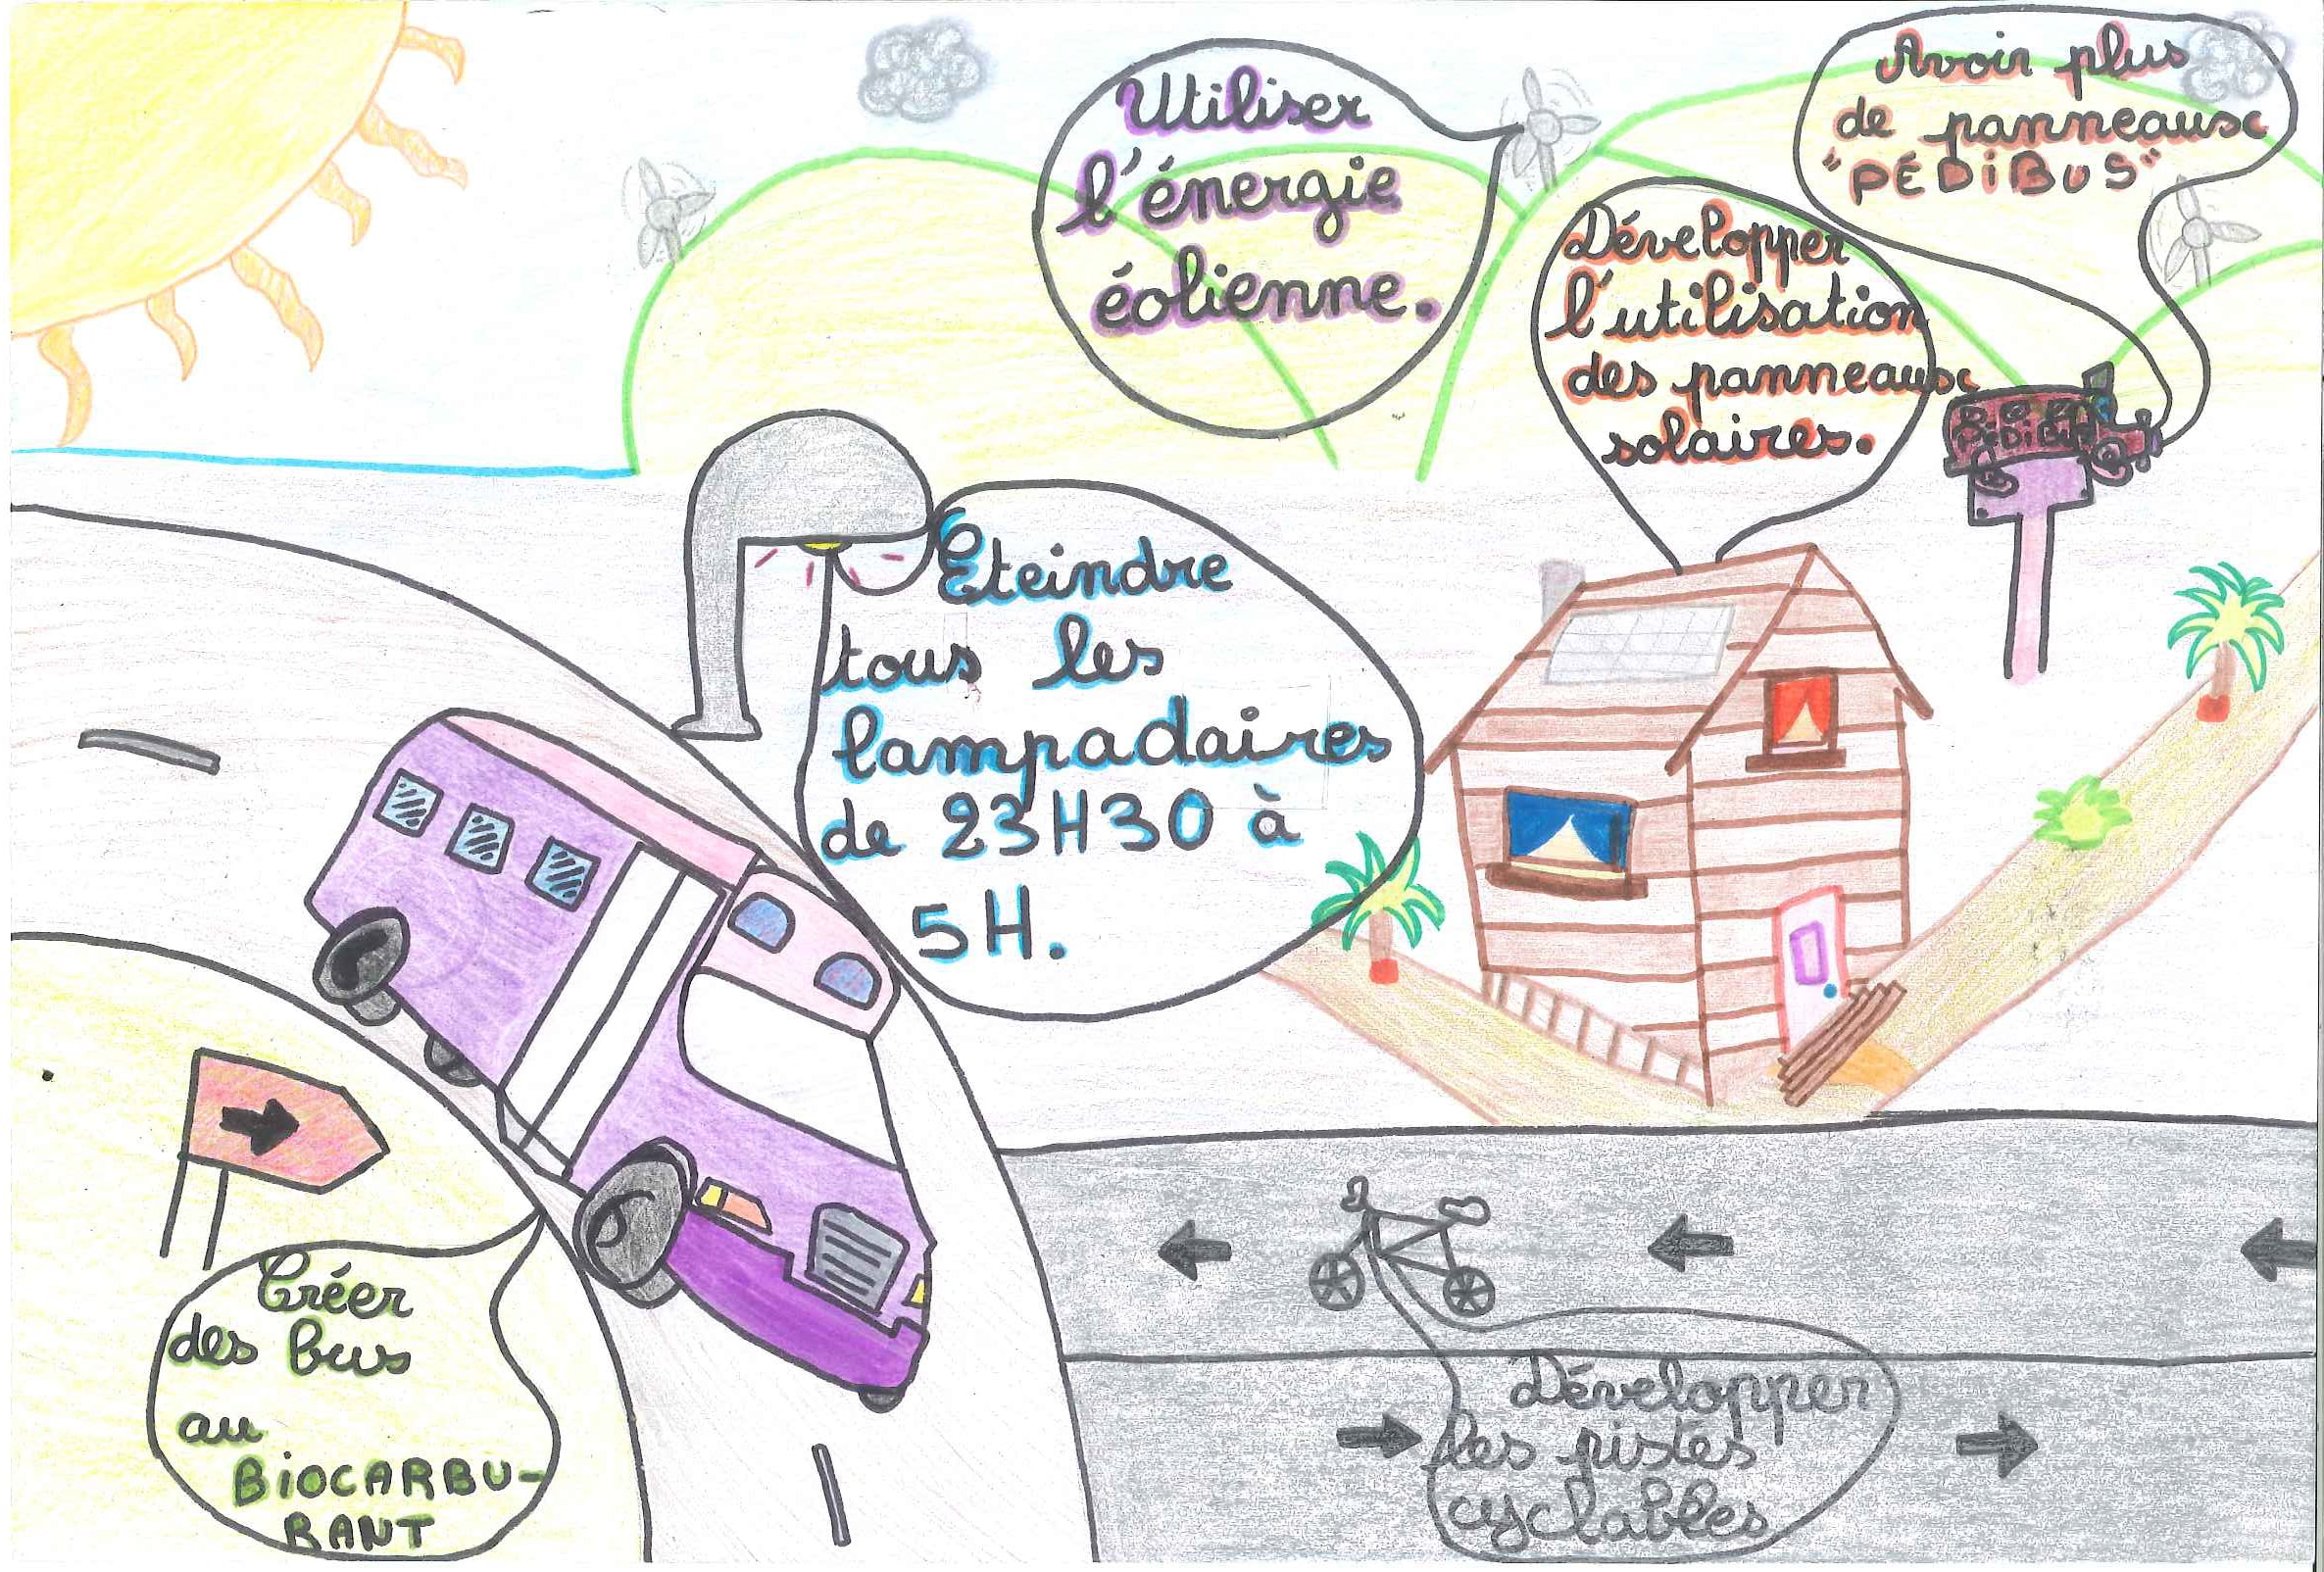 Utiliser
l'énergie
éolienne.
Avoir plus
de panneaux
"PÉDiBUS"
Développer
l'utilisation
des panneaux
solaires.
PéDiBus
Eteindre
tous les
lampadaires
de 23H30 à
5H.
Créer
des bus
au
BiOCARBU-
RANT
Développer
les pistes
cyclables